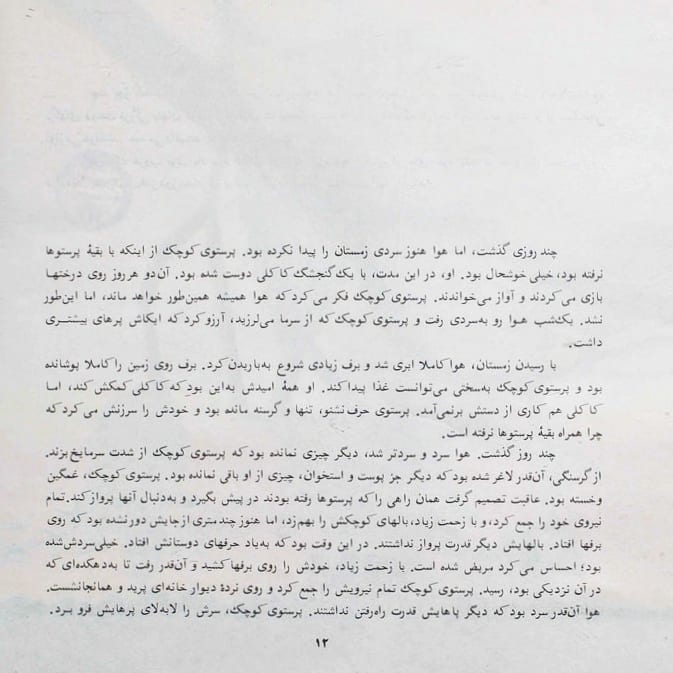 چند روزی گذشت، اما هوا هنوز سردی زمستان را پیدا نکرده بود. پرستوی کوچک از اینکه با بقیهٔ پرستوها
نرفته بود، خیلی خوشحال بود. او، در این مدت، با یک گنجشک کاکلی دوست شده بود. آن‌دو هرروز روی درختها
بازی می‌کردند و آواز می‌خواندند. پرستوی کوچک فکر می‌کرد که هوا همیشه همین‌طور خواهد ماند، اما این‌طور
نشد. یک‌شب هوا رو به‌سردی رفت و پرستوی کوچک که از سرما می‌لرزید، آرزو کرد که ایکاش پرهای بیشتری
داشت.
با رسیدن زمستان، هوا کاملا ابری شد و برف زیادی شروع به‌باریدن کرد. برف روی زمین را کاملا پوشانده
بود و پرستوی کوچک به‌سختی می‌توانست غذا پیدا کند. او همهٔ امیدش به‌این بود که کاکلی کمکش کند، اما
کاکلی هم کاری از دستش برنمی‌آمد. پرستوی حرف‌نشنو، تنها و گرسنه مانده بود و خودش را سرزنش می‌کرد که
چرا همراه بقیهٔ پرستوها نرفته است.
چند روز گذشت. هوا سرد و سردتر شد، دیگر چیزی نمانده بود که پرستوی کوچک از شدت سرما یخ بزند.
از گرسنگی، آن‌قدر لاغر شده بود که دیگر جز پوست و استخوان، چیزی از او باقی نمانده بود. پرستوی کوچک، غمگین
و خسته بود. عاقبت تصمیم گرفت همان راهی را که پرستوها رفته بودند در پیش بگیرد و به‌دنبال آنها پرواز کند. تمام
نیروی خود را جمع کرد، و با زحمت زیاد، بالهای کوچکش را بهم‌زد، اما هنوز چند متری از جایش دور نشده بود که روی
برفها افتاد. بالهایش دیگر قدرت پرواز نداشتند. در این وقت بود که به‌یاد حرفهای دوستانش افتاد. خیلی سردش شده
بود؛ احساس می‌کرد مریض شده است. با زحمت زیاد، خودش را روی برفها کشید و آن‌قدر رفت تا به‌دهکده‌ای که
در آن نزدیکی بود، رسید. پرستوی کوچک تمام نیرویش را جمع کرد و روی نردهٔ دیوار خانه‌ای پرید و همانجا نشست.
هوا آن‌قدر سرد بود که دیگر پاهایش قدرت راه‌رفتن نداشتند. پرستوی کوچک، سرش را لابه‌لای پرهایش فرو برد.
۱۲